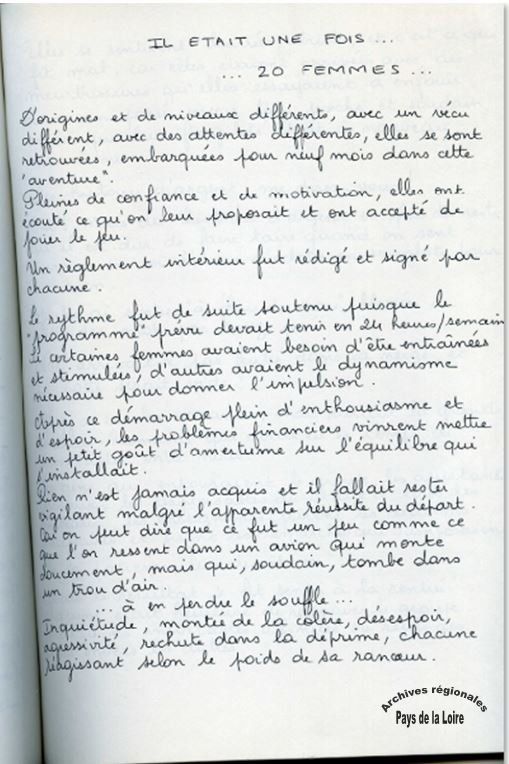 IL ETAIT UNE FOIS...
... 20 FEMMES...
D'origines et de niveaux différents, avec un vécu
différent, avec des attentes différentes, elles se sont
retrouvées, embarquées pour neuf mois dans cette
"aventure".
Pleines de confiance et de motivation, elles ont
écouté ce qu'on leur proposait et ont accepté de
jouer le jeu.
Un règlement intérieur fut rédigé et signé par
chacune.
Le rythme fut de suite soutenu puisque le
"programme" prévu devait tenir en 24 heures/semaine
Si certaines femmes avaient besoin d'être entraînées
et stimulées, d'autres avaient le dynamisme
nécessaire pour donner l'impulsion.
Après ce démarrage plein d'enthousiasme et
d'espoir, les problèmes financiers vinrent mettre
un petit goût d'amertume sur l'équilibre qui
s'installait.
Rien n'est jamais acquis et il fallait rester
vigilant malgré l'apparente réussite du départ.
on peut dire que ce fut un peu comme ce
que l'on ressent dans un avion qui monte
doucement, mais qui, soudain, tombe dans
un trou d'air.
... à en perdre le souffle...
Inquiétude, montée de la colère, désespoir,
agressivité, rechute dans la déprime, chacune
réagissant selon le poids de sa rancœur.
Archives régionales
Pays de la Loire